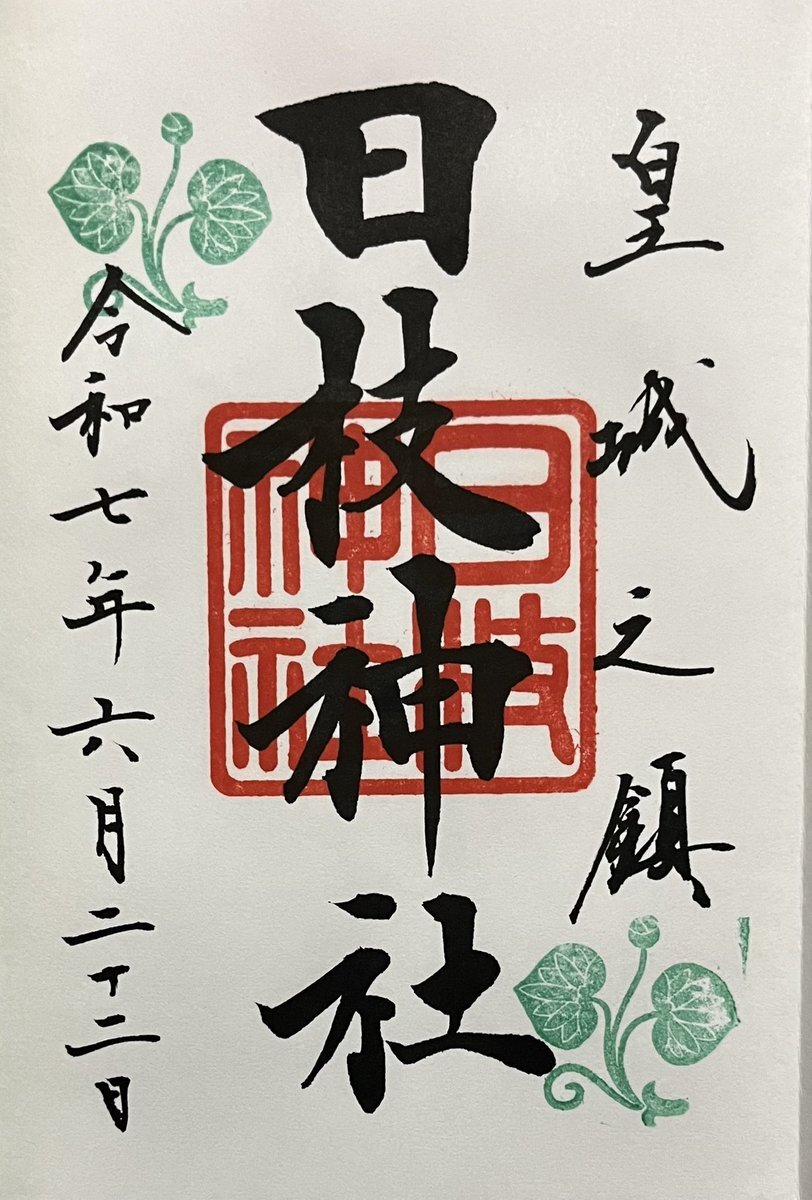 皇城之鎮
日枝神社
日枝神社
令和七年六月二十二日